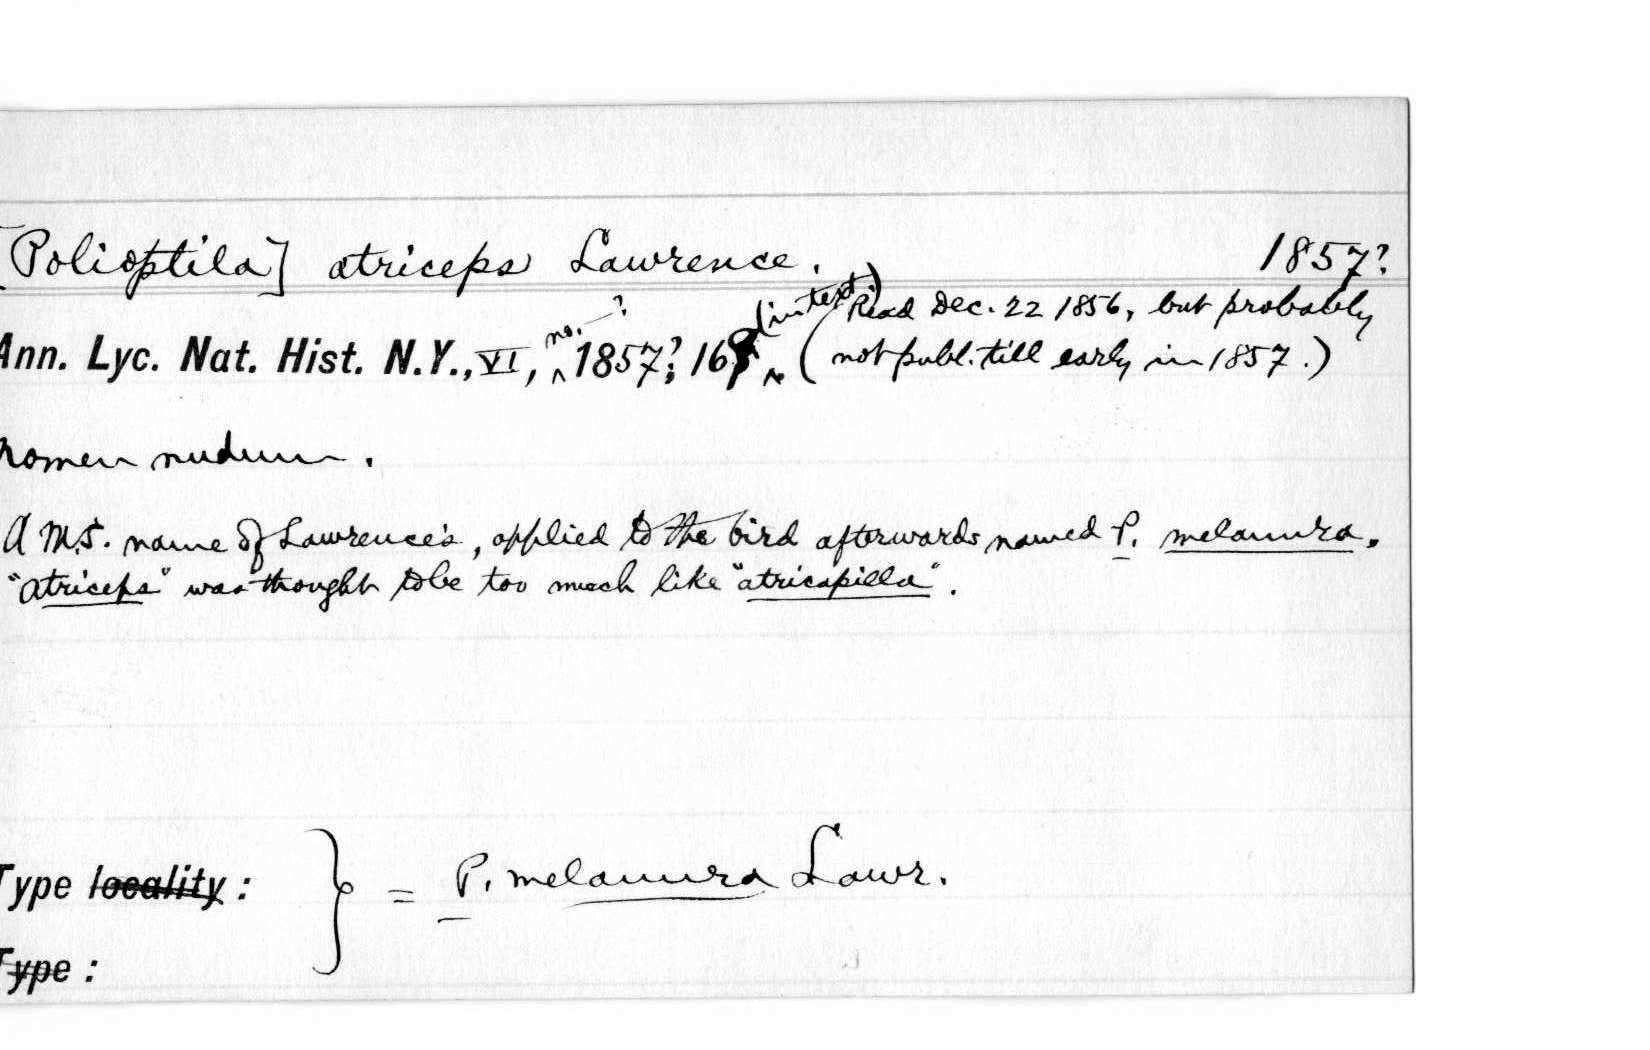 [Polioptila] atriceps Lawrence. 1857?
Ann. Lyc. Nat. Hist. N.Y., VI, no. —? 1857?; 168 (in text) (Read Dec. 22 1856, but probably
not publ. till early in 1857.)
nomen nudum.
A MS. name of Lawrence's, applied to the bird afterwards named P. melanura.
"atriceps" was thought to be too much like "atricapilla".
Type locality: } = P. melanura Lawr.
Type: